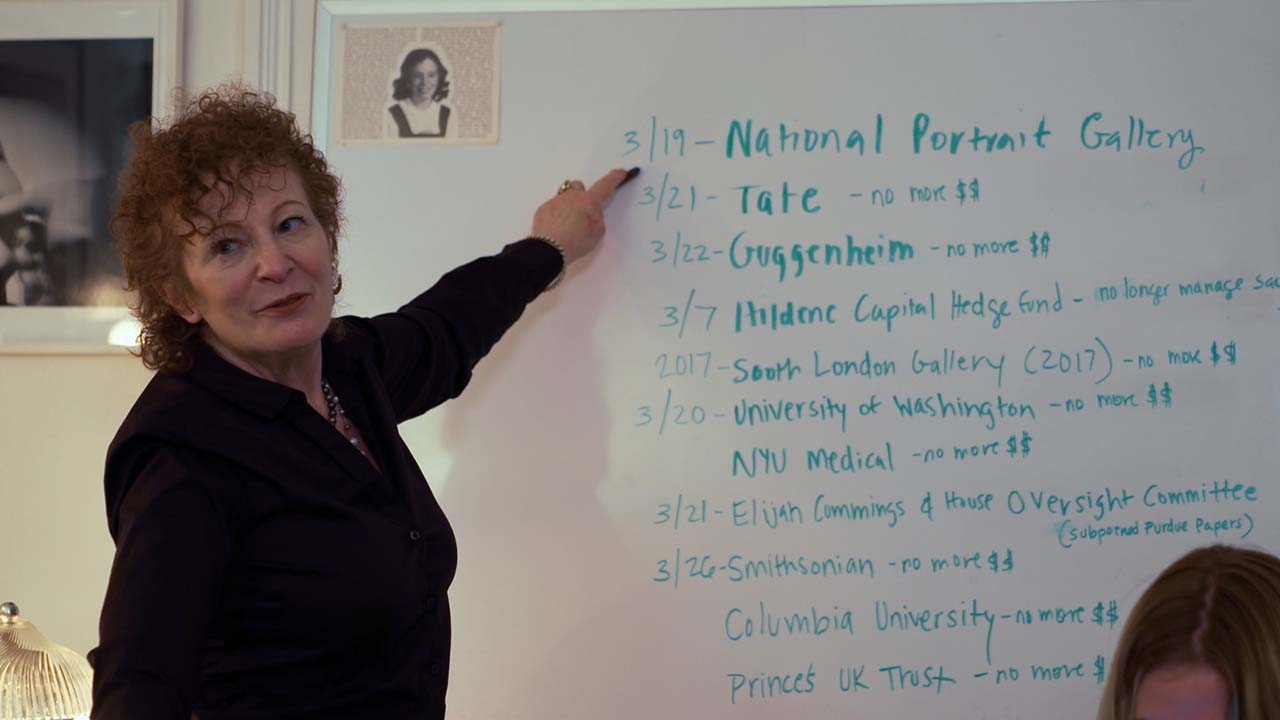 3/19 - National Portrait Gallery
3/21 - Tate - no more $$
3/22 - Guggenheim - no more $$
3/7 Hildene Capital Hedge Fund - no longer manage sac
2017 - South London Gallery (2017) - no more $$
3/20 - University of Washington - no more $$
NYU Medical - no more $$
3/21 - Elijah Cummings & House Oversight Committee
(subpoened Purdue Papers)
3/26 - Smithsonian - no more $$
Columbia University - no more $$
Prince's UK Trust - no more $